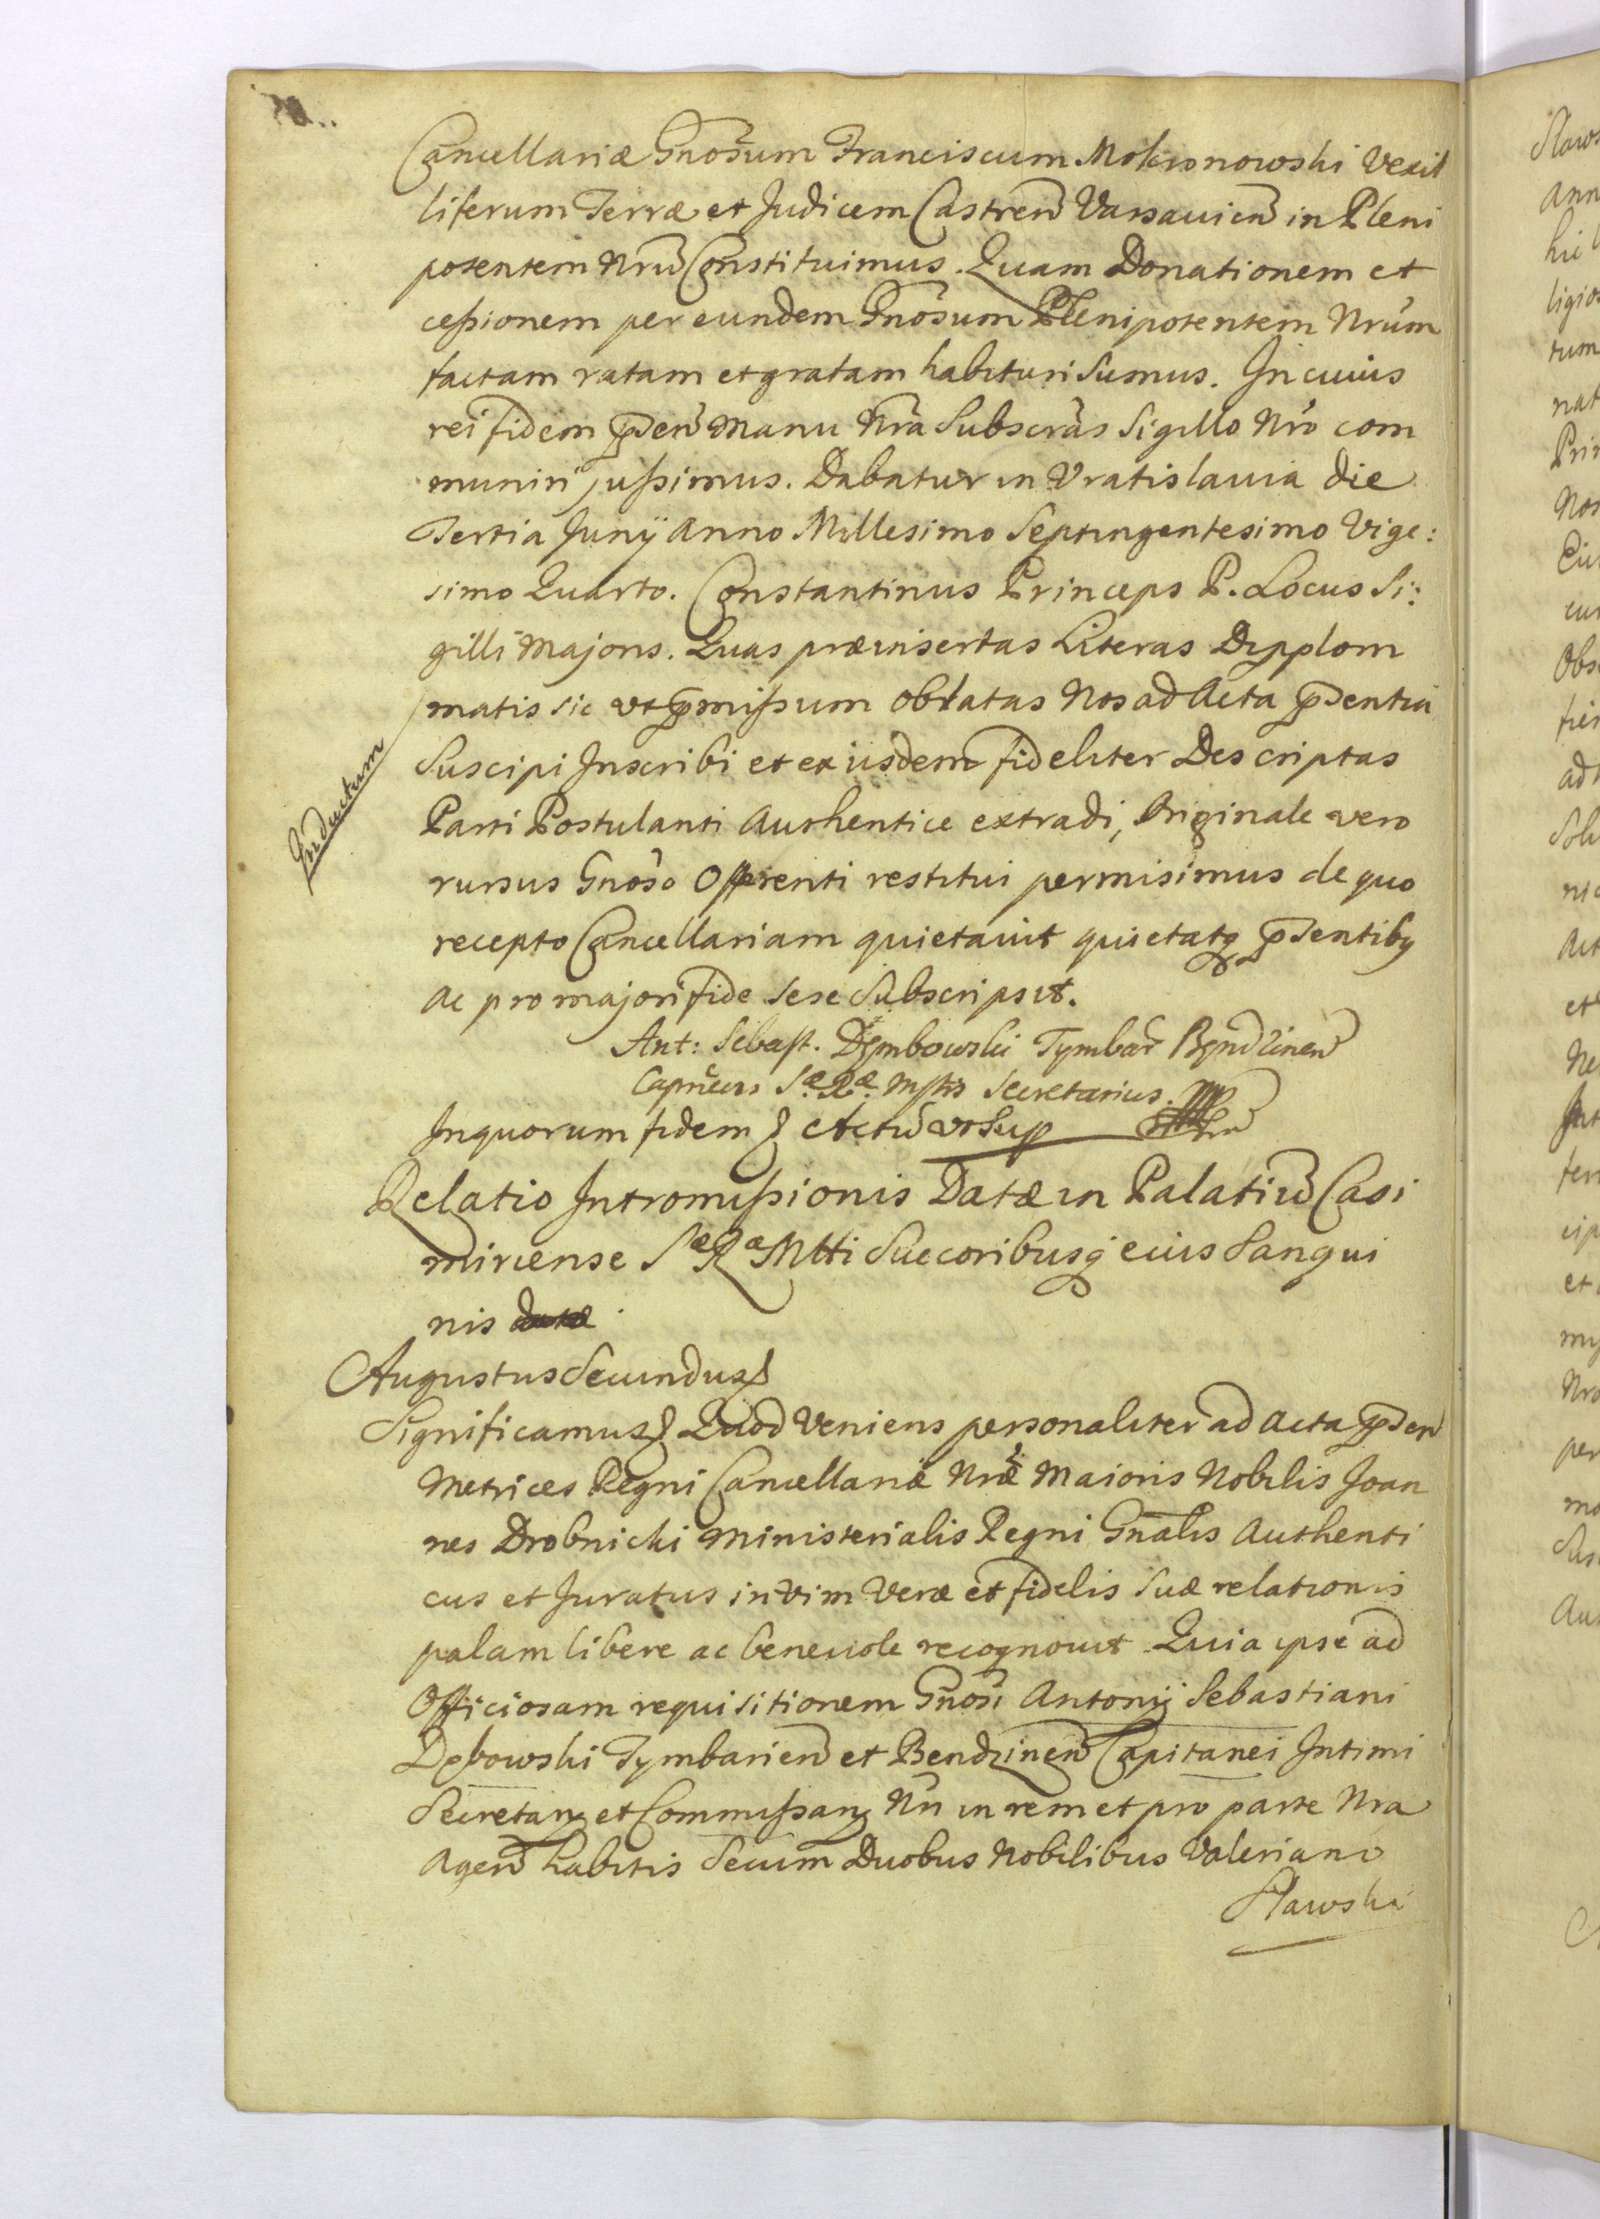 Cancellariæ Gnosum Franciscum Mokronowski Vexil
liferum Terræ et Judicem Castren Varsavien in Pleni
potentem Nrum Constituimus. Quam Donationem et
cessionem per eundem Gnosum Plenipotentem Nrum
factam ratam et gratam habituri sumus. In cuius
rei fidem pden Manu Nra Subscras Sigillo Nro com
muniri jussimus. Dabatur in Vratislavia die
Tertia Junÿ Anno Millesimo Septingentesimo Vige:
simo Quarto. Constantinus Princeps P. Locus Si:
gilli Majoris. Quas præinsertas Literas Dipplom
matis sic ut pmissum oblatas Nos ad Acta pdentia
Suscipi Inscribi et ex iisdem fideliter Descriptas
Parti Postulanti Authentice extradi, Originale vero
rursus Gnoso Offerenti restitui permisimus de quo
recepto Cancellariam quietavit quietatq pdentibq
ac pro majori fide sese Subscripsit.
Inductum
Ant: Sebast. Dęmbowski Tymbar Bęndzinen
Capneus S.æ R.æ Mstis Secretarius.
In quorum fidem Actu ut Sup
Relatio Intromissionis Datæ in Palatiu Casi
miriense Sæ Ræ Mtti Succoribusq eius Sangui
nis
Augustus Secundus
Significamus Quod Veniens personaliter ad acta pden
Metrices Regni Cancellariæ Nræ Maioris Nobilis Joan
nes Drobnicki Ministerialis Regni Gnalis Authenti
cus et Juratus in vim Veræ et fidelis suæ relationis
palam libere ac benevole recognovit Quia ipse ad
Officiosam requisitionem Gnosi Antonÿ Sebastiani
Dębowski Tymbarien et Bendzinen Capitanei Intimi
Secretarÿ et Commissarÿ Nri in rem et pro parte Nra
Agen habitis Secum Duobus Nobilibus Valeriano
Slawski